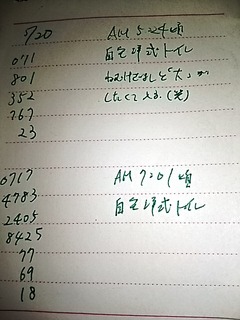 5/20 AM 5:24頃
071 自宅洋式トイレ
801 ねむけざましと「大」が
352 したくてえる。(笑)
767
23
0717 AM 7:01頃
4783 自宅洋式トイレ
2405
8425
77
69
18